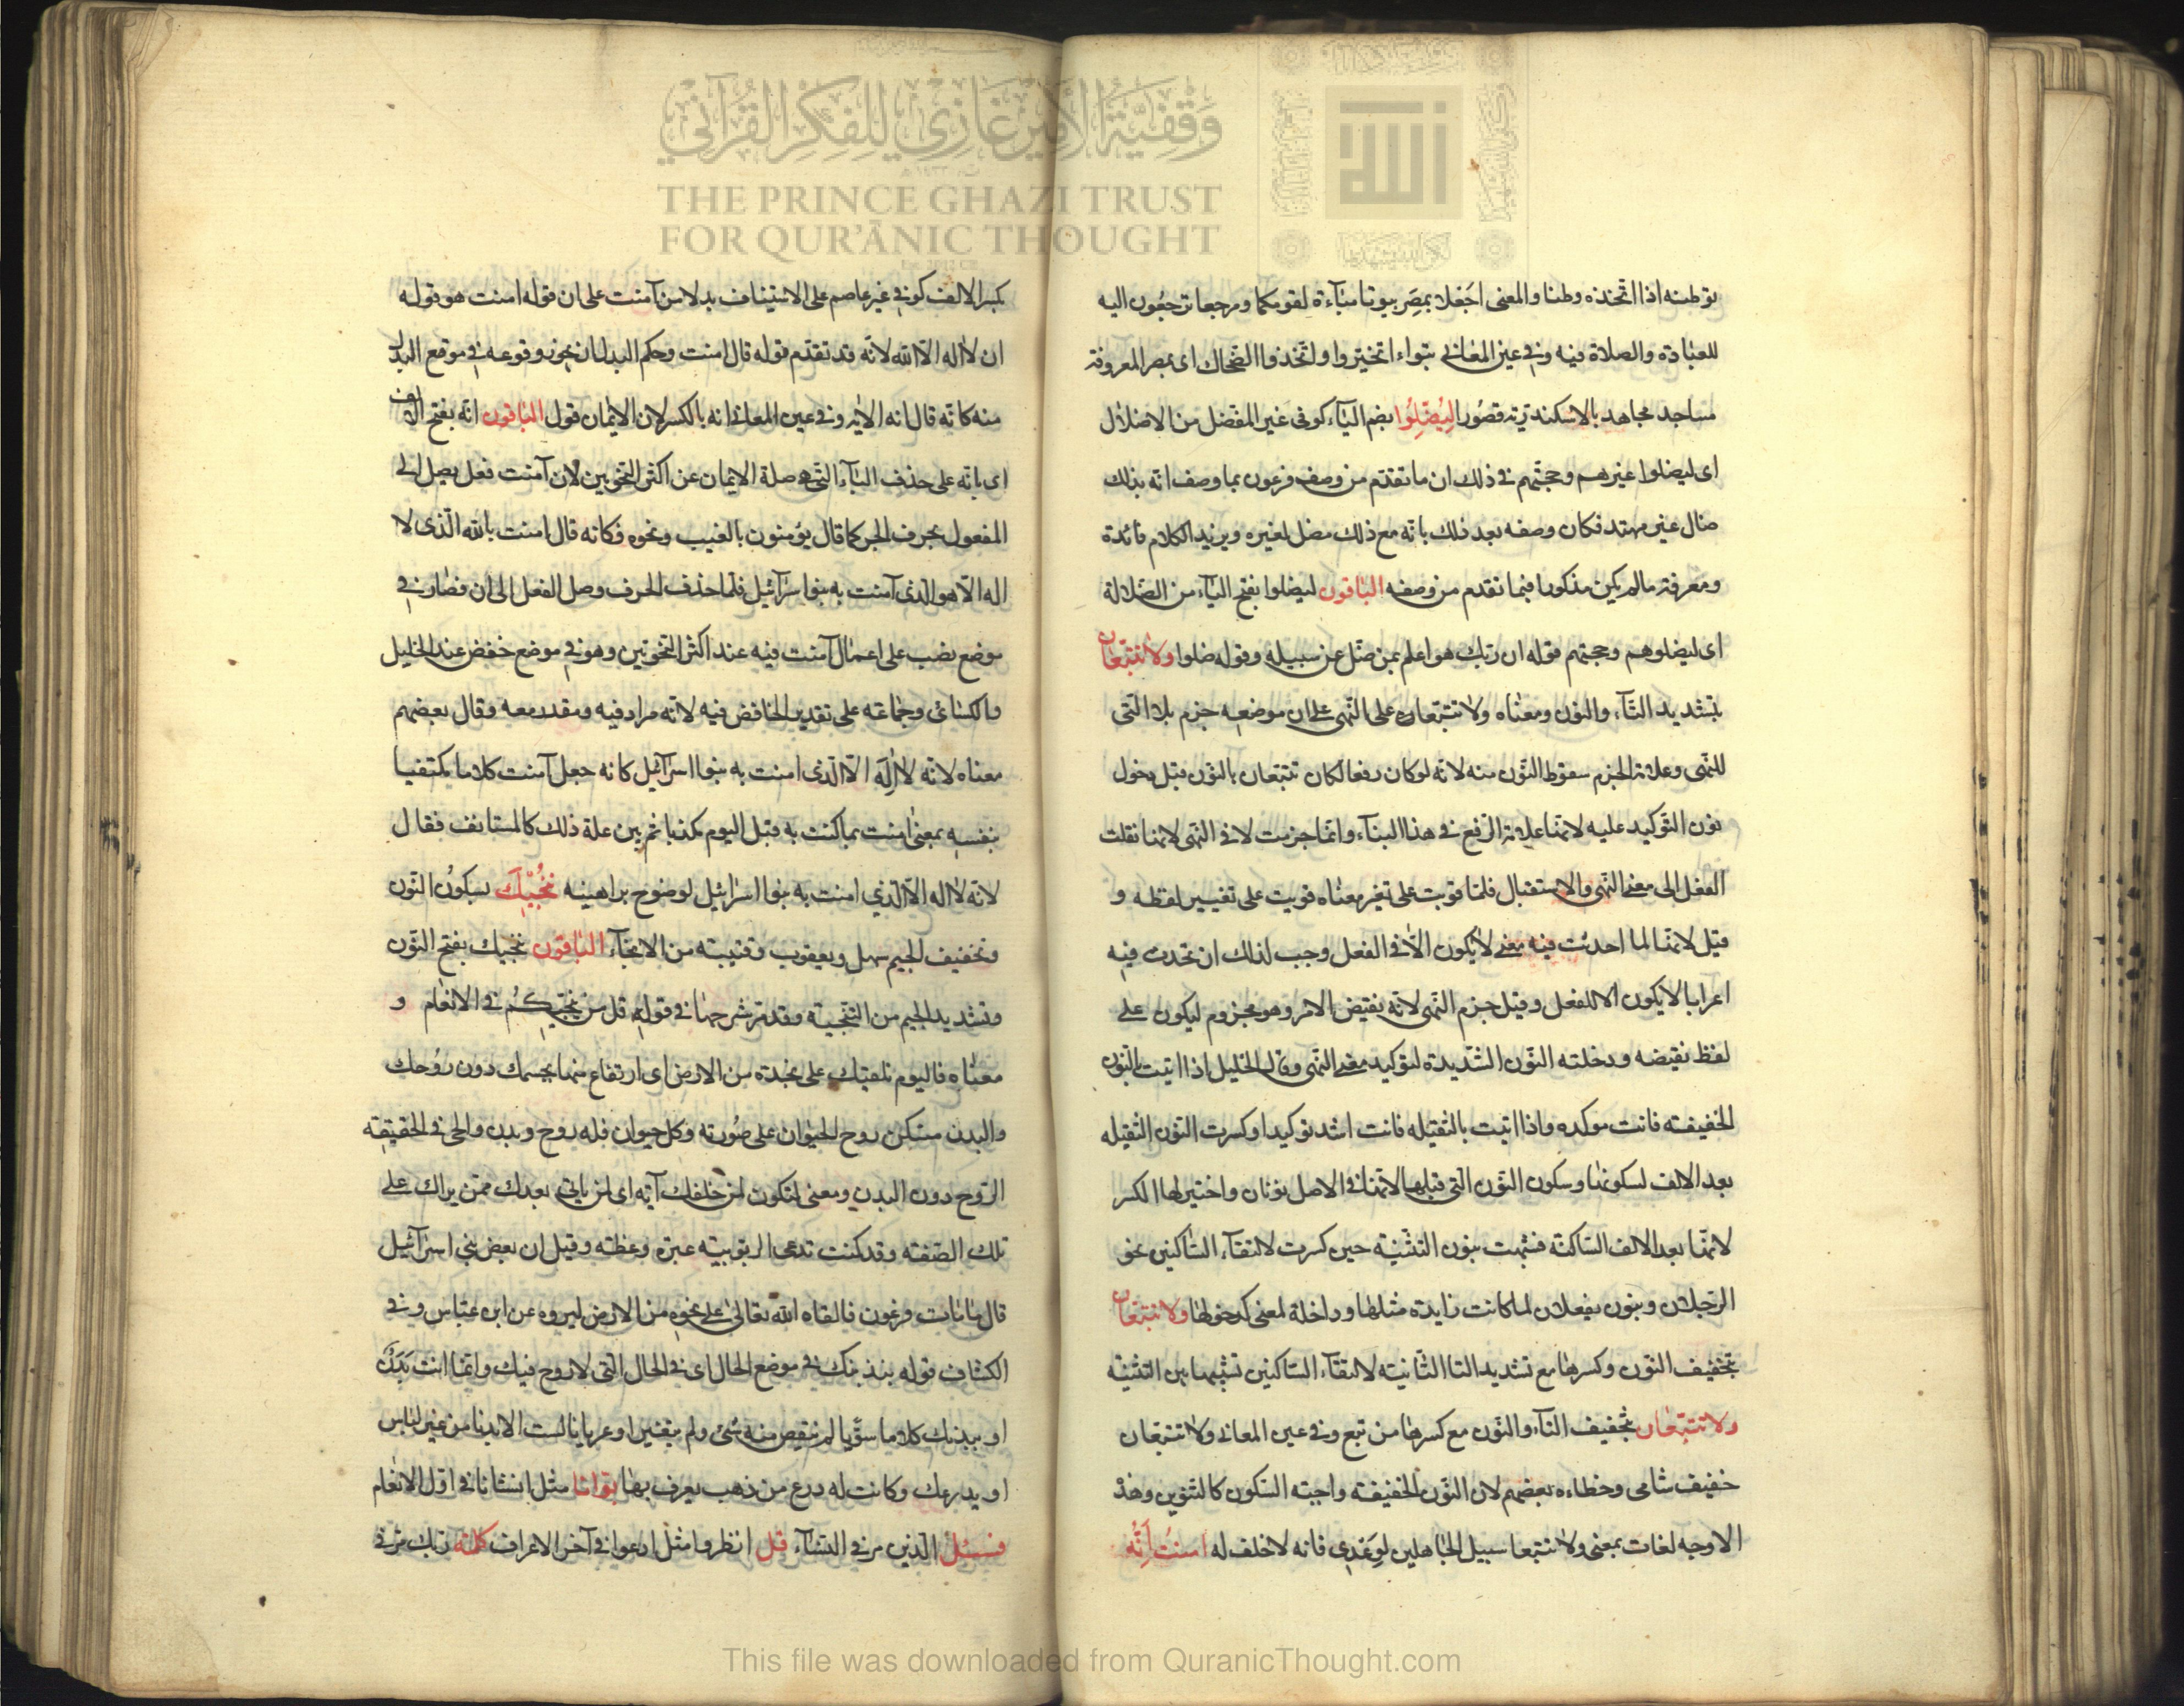 وقفية الأمير غازي للفكر القرآني
THE PRINCE GHAZI TRUST
FOR QUR'ĀNIC THOUGHT
توطنه اذا اتخذه وطنا والمعنى اجعلا بمصر بيوتا مباءة لقومكما ومرجعا ترجعون اليه
للعبادة والصلاة فيه وفي عين المعاني تبواء اتخيروا واتخذوا الضحاك اى بمصر المعروفة
مساجد مجاهد بالاسكندرية قصورا ليضلوا بضم الياء كوفى غير المفضل من الاضلال
اى ليضلوا غيرهم وحجتهم في ذلك ان ما تقدم من وصف فرعون بما وصف انه بذلك
ضال غير مهتد فكان وصفه بعد ذلك بانه مع ذلك مضل لغيره ويزيد الكلام فائدة
ومعرفة مالم يكن مذكورا فيما تقدم من وصفه الباقون ليضلوا بفتح الياء من الضلالة
اى ليضلوهم وحجتهم قوله ان ربك هو اعلم بمن ضل عن سبيله وقوله ضلوا ولا تتبعان
بتشديد التاء والنون ومعناه ولا تتبعان على النهى على ان موضعه جزم بلا التى
للنهى وعلامة الجزم سقوط النون منه لانه لو كان رفعا لكان تتبعان بالنون قبل دخول
نون التوكيد عليه لانها علامة الرفع في هذا البناء وانما جزمت لا في النهى لانها نقلت
الفعل الى معنى النهى والاستقبال فلما قويت على تغير معناه قويت على تغيير لفظه و
قيل لانها لما احدثت فيه معنى لا يكون الا في الفعل وجب لذلك ان تحدث فيه
اعرابا لا يكون الا للفعل وقيل جزم النهى لانه نقيض الامر وهو مجزوم ليكون على
لفظ نقيضه ودخلته النون الشديدة لتوكيد معنى النهى وقال الخليل اذا اتيت بالنون
الخفيفة فانت موكده واذا اتيت بالثقيلة فانت اشد توكيدا وكسرت النون الثقيله
بعد الالف لسكونها وسكون النون التى قبلها لانها في الاصل نونان واختير لها الكسر
لانها بعد الالف الساكنة فشبهت بنون التثنية حين كسرت لالتقاء الساكنين نحو
الرجلان وبنون يفعلان لما كانت زايدة مثلها وداخلة لمعنى كدخولها ولا تتبعان
بتخفيف النون وكسرها مع تشديد التا الثانية لالتقاء الساكنين تشبيها بين التثنية
ولا تتبعان بتخفيف التاء والنون مع كسرها من تبع وفي عين المعاني ولا تتبعان
خفيف شامى وخطاءه بعضهم لان النون الخفيفة واجبة السكون كالتنوين وهذ
الاوجه لغات بمعنى ولا تتبعا سبيل الجاهلين لوعدى فانه لا خلف له امنت انه
بكسر الالف كوفي غير عاصم على الاستيناف بدلا من آمنت على ان قوله امنت هو قوله
ان لا اله الا الله لانه قد تقدم قوله قال امنت وحكم البدل ان يجوز وقوعه في موقع المبدل
منه كانه قال انه الاية وفي عين المعاني انه بالكسر لان الايمان قول الباقون انه بفتح الالف
اى بانه على حذف الباء التى هي صلة الايمان عن اكثر النحويين لان آمنت فعل يصل الى
المفعول بحرف الجر كما قال يؤمنون بالغيب ونحوه فكانه قال امنت بالله الذى لا
اله الا هو الذى آمنت به بنوا سرآئيل فلما حذف الحرف وصل الفعل الى ان فصار في
موضع نصب على اعمال آمنت فيه عند اكثر النحويين وهو في موضع خفض عند الخليل
والكسائى وجماعة على تقدير الخافض فيه لانه مراد فيه ومقدر معه وقال بعضهم
معناه لانه لا اله الا الذى امنت به بنوا اسرآئيل كانه جعل آمنت كلاما مكتفيا
بنفسه بمعنى امنت بما كنت به قبل اليوم مكذبا ثم بين علة ذلك كالمستانف فقال
لانه لا اله الا الذي امنت به بنوا اسرائيل لوضوح براهينه ننجيك بسكون النون
وتخفيف الجيم سهل ويعقوب وقتيبة من الانجاء الباقون ننجيك بفتح النون
وتشديد الجيم من التنجية وقد مر شرحها في قوله قل من ينجيكم في الانعام و
معناه فاليوم نلقيك على نجدة من الارض اى ارتفاع منها بجسمك دون روحك
والبدن مسكن روح الحيوان على صورته وكل حيوان فله روح وبدن والحى في الحقيقة
الروح دون البدن ومعنى لتكون لمن خلفك آية اى لمن ياتى بعدك ممن يراك على
تلك الصفة وقد كنت تدعى الربوبية عبرة وعظة وقيل ان بعض بني اسرآئيل
قال ما مات فرعون فالقاه الله تعالى على نجوة من الارض ليروه عن ابن عباس وفي
الكشاف قوله ببدنك في موضع الحال اى في الحال التى لا روح فيك وانما انت بدن
او ببدنك كلاما سويا لم ينقص منه شئ ولم يتغير او عريانا لست الا بدنا من غير لباس
او بدرعك وكانت له درع من ذهب يعرف بها بوانا مثل انشانا في اول الانعام
فسئل الذين مر في النساء قل انظروا مثل ادعوا في آخر الاعراف كلمة ربك مر في
This file was downloaded from QuranicThought.com